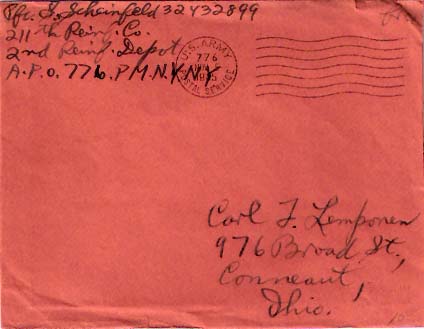 Pfc. S. Scheinfeld 32432899
211th Reinf. Co.
2nd Reinf. Depot
A.P.O. 776. P.M.N.Y. N.Y.
U.S. ARMY
776
1945
POSTAL SERVICE
Carl F. Lemponen
976 Broad St.,
Conneaut,
Ohio.